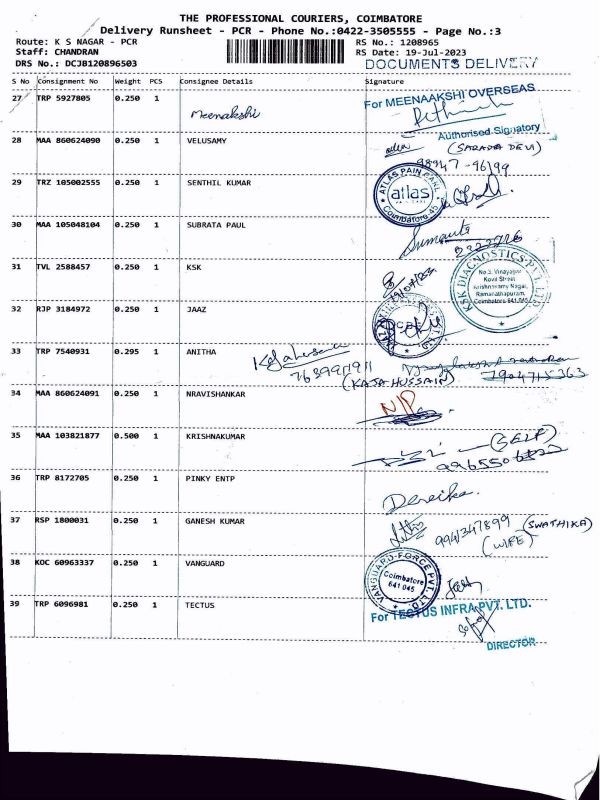 THE PROFESSIONAL COURIERS, COIMBATORE
Delivery Runsheet - PCR - Phone No.:0422-3505555 - Page No.:3
Route: K S NAGAR - PCR RS No.: 1208965
Staff: CHANDRAN RS Date: 19-Jul-2023
DRS No.: DCJB120896503 DOCUMENTS DELIVERY
S No Consignment No Weight PCS Consignee Details Signature
27 TRP 5927805 0.250 1 Meenakshi For MEENAAKSHI OVERSEAS
Authorised Signatory
28 MAA 860624090 0.250 1 VELUSAMY (SARADA DEVI)
98947-96199
29 TRZ 105002555 0.250 1 SENTHIL KUMAR ATLAS PAIN PANL atlas Coimbatore-45
30 MAA 105048104 0.250 1 SUBRATA PAUL Sumanta
31 TVL 2588457 0.250 1 KSK
KSK DIAGNOSTICS PVT. LTD
No.3, Vinayagar
Kovil Street
Krishnasamy Nagar,
Ramanathapuram,
Coimbatore 641 045
32 RJP 3184972 0.250 1 JAAZ
33 TRP 7540931 0.295 1 ANITHA
(KAJA HUSSAIN) 7904715363
34 MAA 860624091 0.250 1 NRAVISHANKAR N/P
35 MAA 103821877 0.500 1 KRISHNAKUMAR (SELF)
36 TRP 8172705 0.250 1 PINKY ENTP
37 RSP 1800031 0.250 1 GANESH KUMAR 9941347899 (SWATHIKA)
(WIFE)
38 KOC 60963337 0.250 1 VANGUARD VANGUARD FORCE PVT. LTD. Coimbatore 641 045
39 TRP 6096981 0.250 1 TECTUS For TECTUS INFRA PVT. LTD.
DIRECTOR